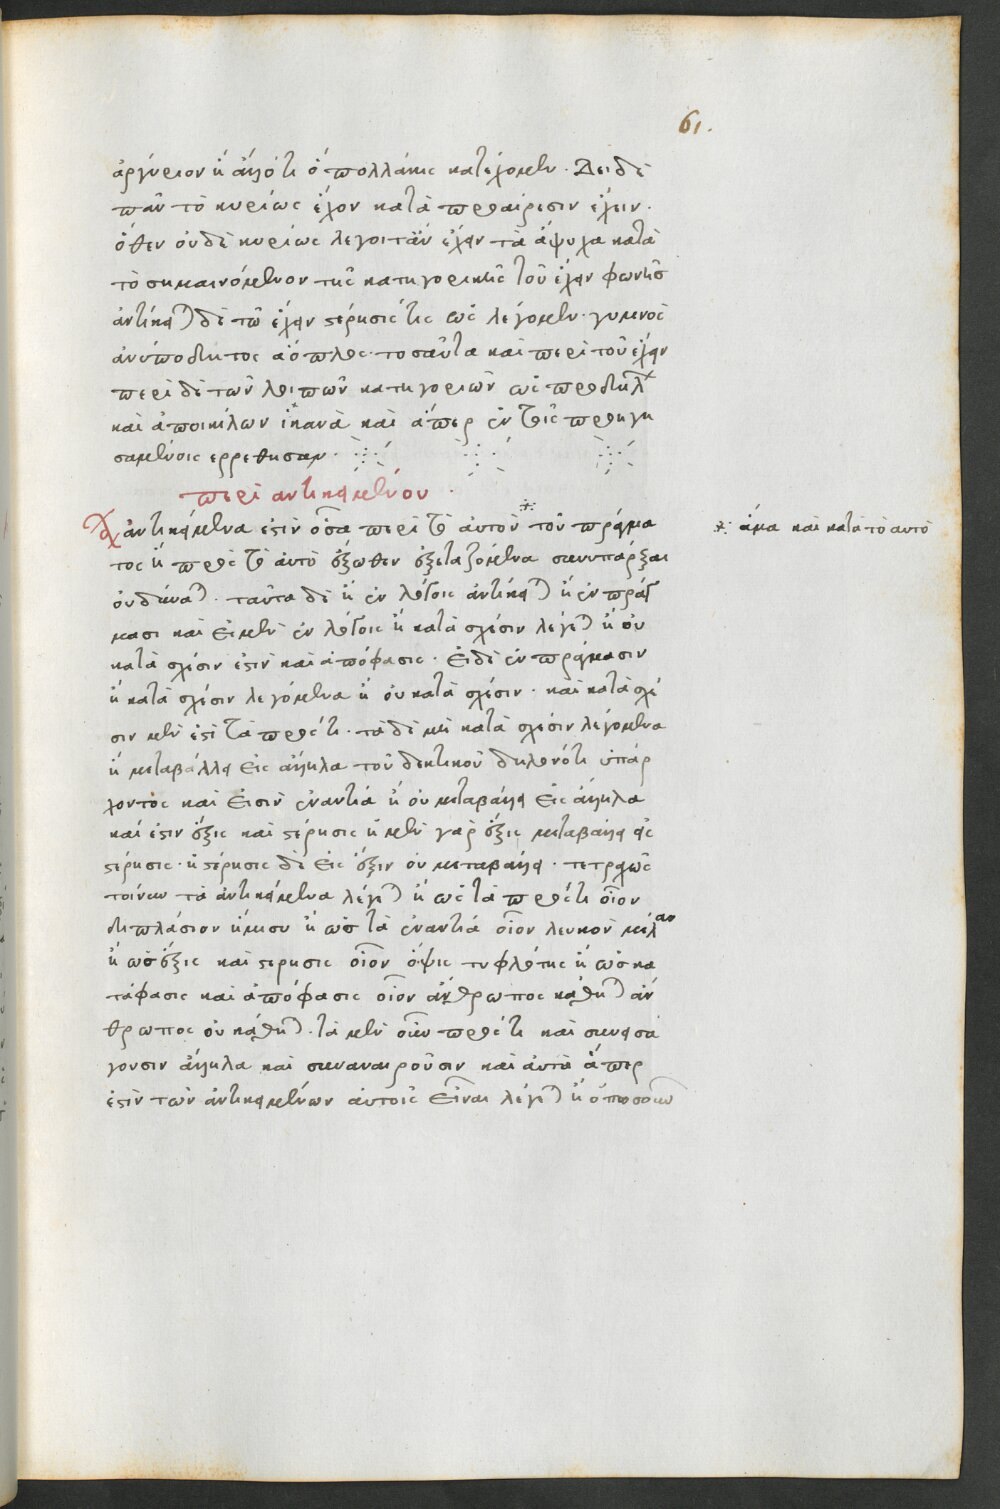 61.
ἀργύριον ἢ ἄλλό τι ὃ πολλάκις κατέχομεν. Δεῖ δὲ
πᾶν τὸ κυρίως ἔχον κατὰ προαίρεσιν ἔχειν.
ὅθεν οὐδὲ κυρίως λέγοιτ ἂν ἔχειν τὰ ἄψυχα κατὰ
τὸ σημαινόμενον τῆς κατηγορικῆς τοῦ ἔχειν φωνῆς
ἀντίκειται δὲ τῷ ἔχειν στέρησίς τις ὡς λέγομεν. γυμνὸς
ἀνυπόδητος ἄοπλος. τοσαῦτα καὶ περὶ τοῦ ἔχειν
περὶ δὲ τῶν λοιπῶν κατηγοριῶν ὡς προδήλων
καὶ ἁποικίλων ἱκανὰ καὶ ἅπερ ἐν τοῖς προηγη
σαμένοις ερρεθησαν.
περὶ αντικειμένου
Τὰ ἀντικείμενα ἐστὶν ὅσα περὶ τὸ αὐτοῦ τοῦ πράγμα
τος ἢ πρὸς τὸ αὐτὸ ἔξωθεν ἐξεταζόμενα συνυπάρξαι
οὐ δύναται. ταῦτα δὲ ἢ ἐν λόγοις ἀντίκειται ἢ ἐν πράγ
μασι καὶ εἰ μὲν ἐν λόγοις ἢ κατὰ σχέσιν λέγεται ἢ οὐ
κατὰ σχέσιν ἐστὶν καὶ ἀπόφασις. Εἰ δὲ ἐν πράγμασιν
ἢ κατὰ σχέσιν λεγόμενα ἢ οὐ κατὰ σχέσιν. καὶ κατὰ σχέ
σιν μὲν ἐστὶ τὰ πρός τι. τὰ δὲ μὴ κατὰ σχέσιν λεγόμενα
ἢ μεταβάλλει εἰς ἄλληλα τοῦ δεκτικοῦ δηλονότι ὑπάρ
χοντος καὶ εἰσὶν ἐναντία ἢ οὐ μεταβάλλει εἰς ἄλληλα
καί ἐστιν ἕξις καὶ στέρησις ἡ μὲν γὰρ ἕξις μεταβάλλει εἰς
στέρησις. ἡ στέρησις δὲ εἰς ἕξιν οὐ μεταβάλλει. τετραχῶς
τοίνυν τὰ ἀντικείμενα λέγεται ἢ ὡς τὰ πρός τι οἷον
διπλάσιον ἥμισυ ἢ ὡς τὰ ἐναντία οἷον λευκὸν μέλαν
ἢ ὡς ἕξις καὶ στέρησις οἷον ὄψις τυφλότης ἢ ὡς κα
τάφασις καὶ ἀπόφασις οἷον ἄνθρωπος κάθηται ἄν
θρωπος οὐ κάθηται. τὰ μὲν οὖν πρός τι καὶ συνεισά
γουσιν ἄλληλα καὶ συναναιροῦσιν καὶ αὐτὰ ἅπερ
ἐστὶν τῶν ἀντικειμένων αὐτοῖς εἶναι λέγεται ἢ ὁπωσοῦν
ἅμα καὶ κατὰ τὸ αυτὸ